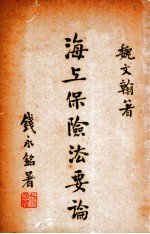 魏文翰著
海上保險法要論
錢永銘署